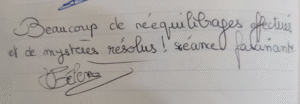 Beaucoup de rééquilibrages effectués
et de mystères résolus ! séance fascinante